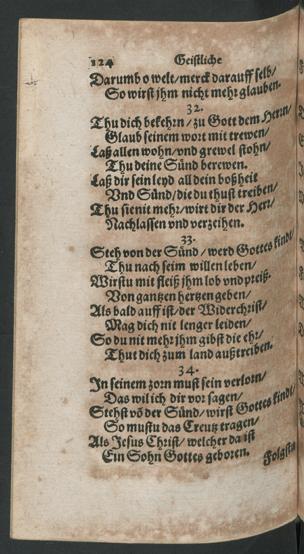 124 Geistliche
Darumb o welt/ merck darauff selb/
So wirst jhm nicht mehr glauben.
32.
Thu dich bekehrn/ zu Gott dem Herrn/
Glaub seinem wort mit trewen/
Laß allen wohn/ vnd grewel stohn/
Thu deine Sünd berewen.
Laß dir sein leyd all dein boßheit
Vnd Sünd/ die du thust treiben/
Thu sie nit mehr/ wirt dir der Herr/
Nachlassen vnd verzeihen.
33.
Steh von der Sünd/ werd Gottes kind/
Thu nach seim willen leben/
Wirstu mit fleiß jhm lob vnd preiß.
Von gantzen hertzen geben/
Als bald auff ist/ der Widerchrist/
Mag dich nit lenger leiden/
So du nit mehr jhm gibst die ehr/
Thut dich zum land außtreiben.
34.
In seinem zorn must sein verlorn/
Das wil ich dir vor sagen/
Stehst võ der Sünd/ wirst Gottes kind/
So mustu das Creutz tragen/
Als Jesus Christ/ welcher da ist
Ein Sohn Gottes geboren.
Folgstu